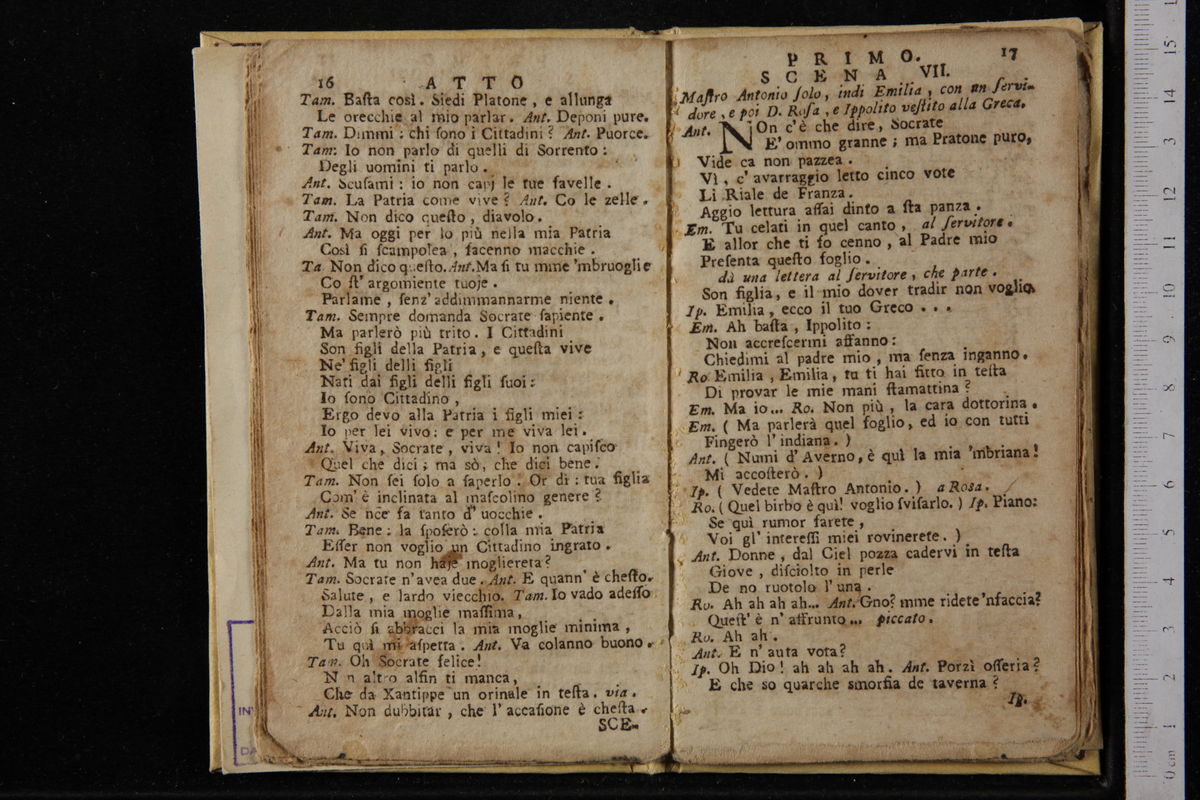 16 ATTO
Tam. Baſta così. Siedi Platone, e allunga
Le orecchie al mio parlar. Ant. Deponi pure.
Tam. Dimmi: chi ſono i Cittadini? Ant. Puorce.
Tam: Io non parlo di quelli di Sorrento:
Degli uomini ti parlo.
Ant. Scuſami: io non capj le tue favelle.
Tam. La Patria come vive? Ant. Co le zelle.
Tam. Non dico queſto, diavolo.
Ant. Ma oggi per lo più nella mia Patria
Così ſi ſcampolea, facenno macchie.
Ta Non dico queſto. Ant. Ma ſi tu mme 'mbruoglie
Co ſt' argomiente tuoje.
Parlame, ſenz' addimmannarme niente.
Tam. Sempre domanda Socrate ſapiente.
Ma parlerò più trito. I Cittadini
Son figli della Patria, e queſta vive
Ne' figli delli figli
Nati dai figli delli figli ſuoi:
Io ſono Cittadino,
Ergo devo alla Patria i figli miei:
Io per lei vivo: e per me viva lei.
Ant. Viva, Socrate, viva! Io non capiſco
Quel che dici; ma sò, che dici bene.
Tam. Non ſei ſolo a ſaperlo. Or di: tua figlia
Com' è inclinata al maſcolino genere?
Ant. Se nce fa tanto d' uocchie.
Tam. Bene: la ſpoſerò: colla mia Patria
Eſſer non voglio un Cittadino ingrato.
Ant. Ma tu non haje mogliereta?
Tam. Socrate n'avea due. Ant. E quann' è cheſto.
Salute, e lardo viecchio. Tam. Io vado adeſſo
Dalla mia moglie maſſima,
Acciò ſi abbracci la mia moglie minima,
Tu quì mi aſpetta. Ant. Va colanno buono.
Tam. Oh Socrate felice!
N n altro alfin ti manca,
Che da Xantippe un orinale in teſta. via.
Ant. Non dubbitar, che l' accaſione è cheſta.
SCE-
PRIMO. 17
SCENA VII.
Maſtro Antonio ſolo, indi Emilia, con un ſervi-
dore, e poi D. Roſa, e Ippolito veſtito alla Greca.
Ant. NOn c'è che dire, Socrate
E' ommo granne; ma Pratone puro,
Vide ca non pazzea.
Vì, c' avarraggio letto cinco vote
Li Riale de Franza.
Aggio lettura aſſai dinto a ſta panza.
Em. Tu celati in quel canto, al ſervitore.
E allor che ti fo cenno, al Padre mio
Preſenta queſto foglio.
dà una lettera al ſervitore, che parte.
Son figlia, e il mio dover tradir non voglio.
Ip. Emilia, ecco il tuo Greco ...
Em. Ah baſta, Ippolito:
Non accreſcermi affanno:
Chiedimi al padre mio, ma ſenza inganno.
Ro. Emilia, Emilia, tu ti hai fitto in teſta
Di provar le mie mani ſtamattina?
Em. Ma io... Ro. Non più, la cara dottorina.
Em. ( Ma parlerà quel foglio, ed io con tutti
Fingerò l' indiana. )
Ant. ( Numi d' Averno, è quì la mia 'mbriana!
Mi accoſterò. )
Ip. ( Vedete Maſtro Antonio. ) a Roſa.
Ro. ( Quel birbo è quì! voglio ſviſarlo. ) Ip. Piano:
Se quì rumor farete,
Voi gl' intereſſi miei rovinerete. )
Ant. Donne, dal Ciel pozza cadervi in teſta
Giove, diſciolto in perle
De no ruotolo l' una.
Ro. Ah ah ah ah... Ant. Gno? mme ridete 'nfaccia?
Queſt' è n' affrunto... piccato.
Ro. Ah ah.
Ant. E n' auta vota?
Ip. Oh Dio! ah ah ah ah. Ant. Porzì oſſeria?
E che so quarche smorfia de taverna?
Ip.
IN
DA
0 cm 1 2 3 4 5 6 7 8 9 10 11 12 3 14 15